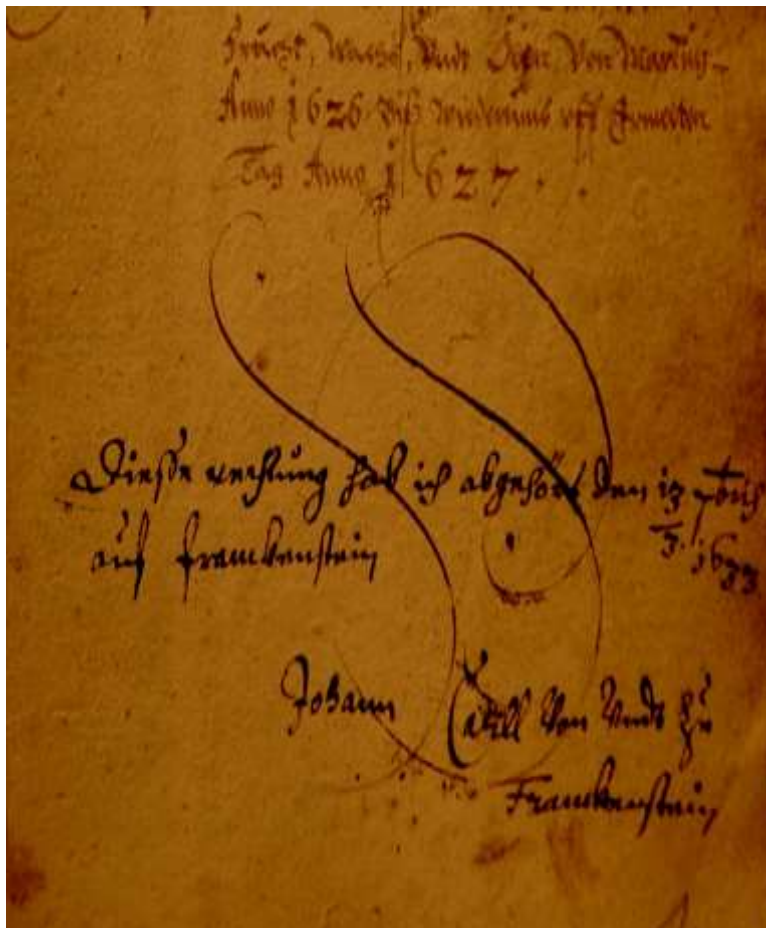 Frücht, Wachs, Vndt Von Martiny
Anno 1626 Biß Wiederumb vff
Tag Anno 1627.
Diesse rechnung hab ich abgehört den 13
1633
auf franckenstein
Johann Von Vndt Zu
Franckenstein